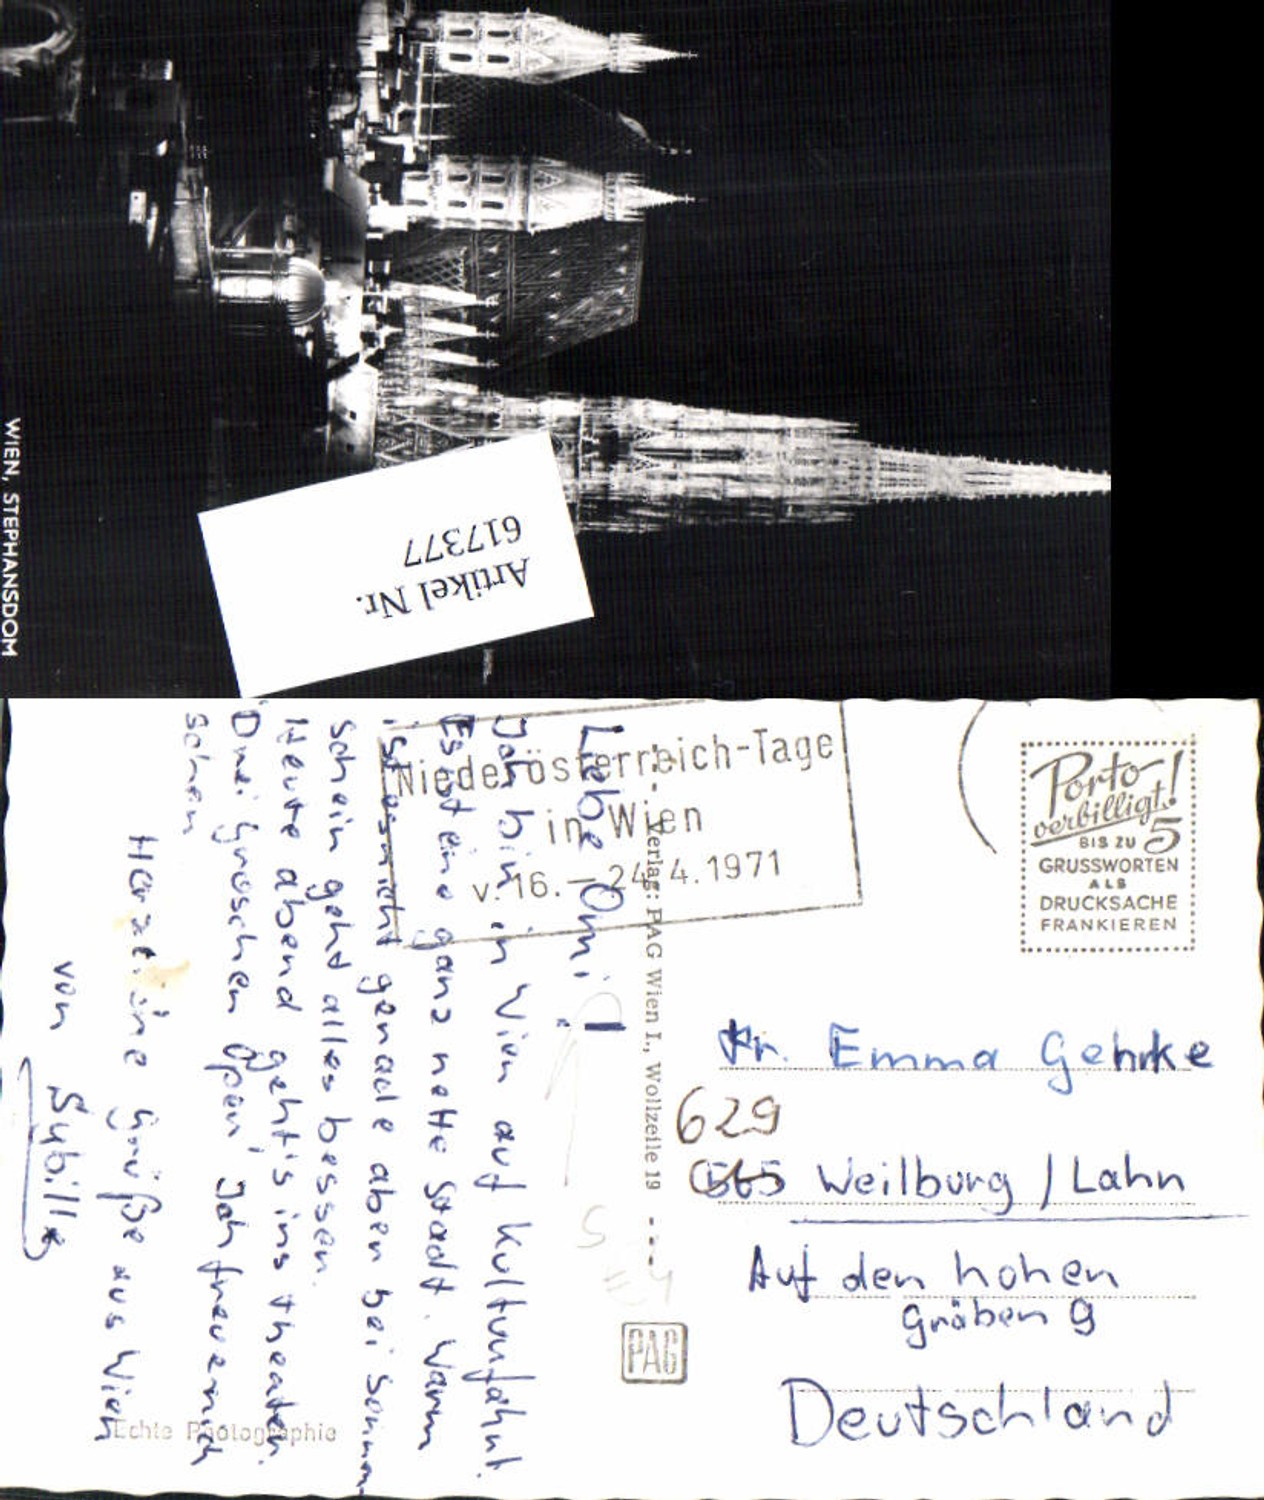 WIEN, STEPHANSDOM
Artikel Nr.
617377
Niederösterreich-Tage
in Wien
v. 16. – 24. 4. 1971
Porto-
verbilligt!
BIS ZU 5
GRUSSWORTEN
ALS
DRUCKSACHE
FRANKIEREN
Liebe Omi!
Ich bin in Wien auf Kulturfahrt.
Es ist eine ganz nette Stadt. Warm
ist es nicht gerade aber bei Sonnen-
schein geht alles besser.
Heute abend geht's ins Theater.
'Drei Groschen Oper' Ich freue mich
schon
Herzliche Grüße aus Wien
von Sybille
Verlag: PAG Wien I., Wollzeile 19
PAG
Echte Photographie
Fr. Emma Gehrke
629
565 Weilburg / Lahn
Auf den hohen
Gräben 9
Deutschland